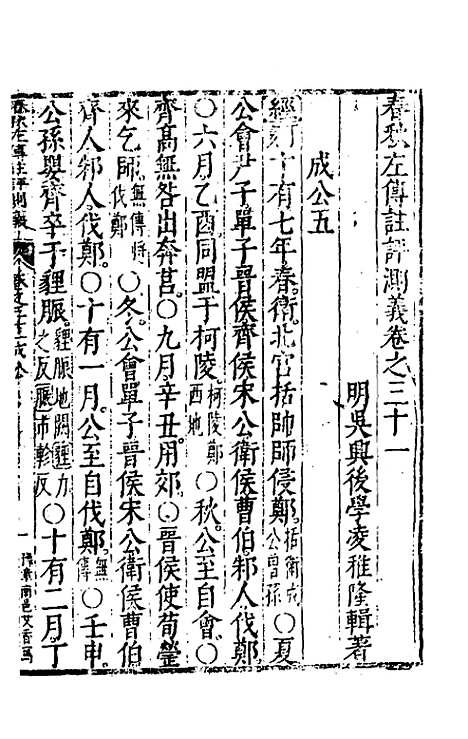 春秋左傳註評測義卷之三十一
明吳興後學凌稚隆輯著
成公五
經丁十有七年春。衛北宮括帥師侵鄭。括衛成公曾孫〇夏
公會尹子單子晉侯齊侯宋公衛侯曹伯。邾人伐鄭。
〇六月。乙酉。同盟于柯陵。柯陵鄭西地〇秋。公至自會。〇
齊高無咎出奔莒。〇九月。辛丑。用郊。〇晉侯使荀罃
來乞師。無傳將伐鄭〇冬。公會單子晉侯宋公衛侯曹伯
齊人邾人。伐鄭。〇十有一月。公至自伐鄭。無傳〇壬申。
公孫嬰齊卒于貍脤。貍脤地闕貍力之反脤市軫反〇十有二月。丁
春秋左傳註評測義 卷之三十一成公 一